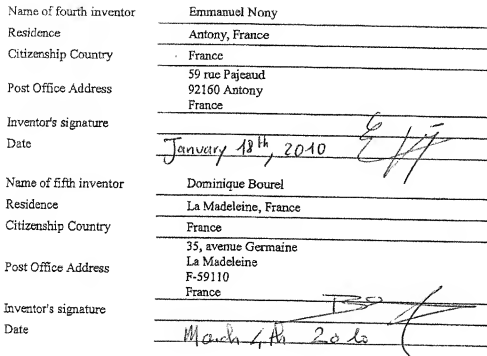 Name of fourth inventor Emmanuel Nony
Residence Antony, France
Citizenship Country France
Post Office Address 59 rue Pajeaud
92160 Antony
France
Inventor's signature
Date January 18th, 2010
Name of fifth inventor Dominique Bourel
Residence La Madeleine, France
Citizenship Country France
Post Office Address 35, avenue Germaine
La Madeleine
F-59110
France
Inventor's signature
Date March 4th 2010